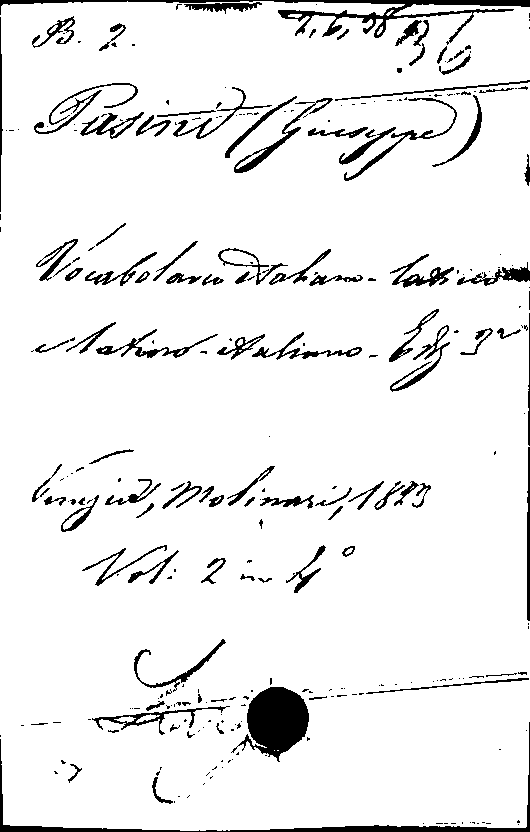 B. 2. 2, 6, 38 36
Pasini (Giuseppe)
Vocabolario italiano-latino
e latino-italiano - Ediz 3ᵃ
Venezia, Molinari, 1823
Vol: 2 in 4°